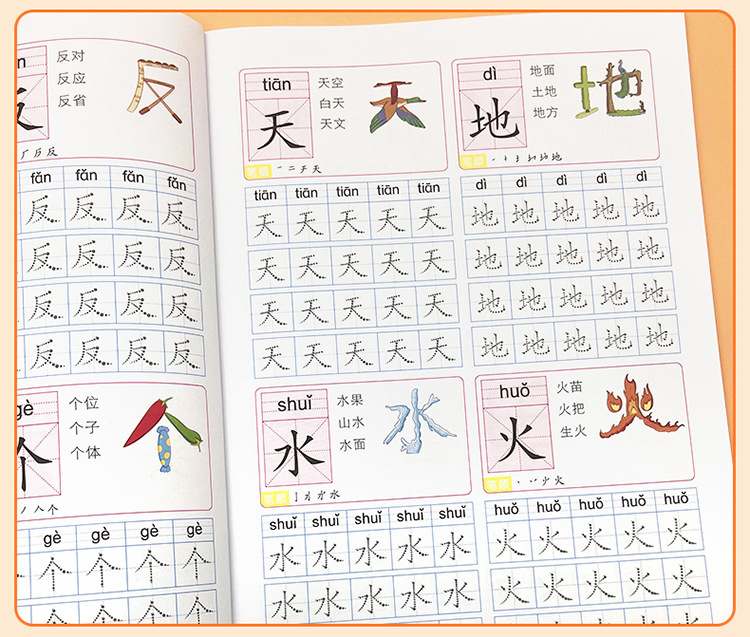 n
反对
反应
反省
反
厂 反 反
fǎn fǎn fǎn fǎn
反 反 反 反
反 反 反 反
反 反 反 反
反 反 反 反
gè
个位
个子
个体
个
丿 人 个
gè gè gè gè
个 个 个 个
个 个 个 个
tiān
天空
白天
天文
天
笔顺 一 二 于 天
tiān tiān tiān tiān tiān
天 天 天 天 天
天 天 天 天 天
天 天 天 天 天
天 天 天 天 天
dì
地面
土地
地方
地
笔顺
dì dì dì dì dì
地 地 地 地 地
地 地 地 地 地
地 地 地 地 地
地 地 地 地 地
shuǐ
水果
山水
水面
水
笔顺
shuǐ shuǐ shuǐ shuǐ shuǐ
水 水 水 水 水
水 水 水 水 水
huǒ
火苗
火把
生火
火
笔顺
huǒ huǒ huǒ huǒ huǒ
火 火 火 火 火
火 火 火 火 火